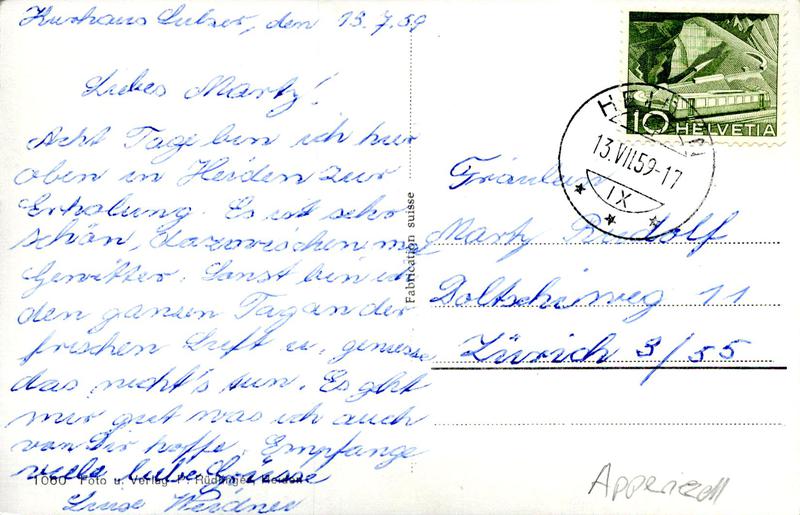 Kurhaus Sulzer, den 13.7.59
Liebes Marty!
Acht Tage bin ich hier
oben in Heiden zur
Erholung. Es ist sehr
schön, dazwischen mal
Gewitter. Sonst bin ich
den ganzen Tag an der
frischen Luft u. geniesse
das nicht's tun. Es geht
mir gut was ich auch
von Dir hoffe. Empfange
viele liebe Grüsse
Luise Weidner
1060 Foto u. Verlag P. Rüdinger, Heiden
Fabrication suisse
10 HELVETIA
HEIDEN
13.VII.59-17
IX
Fräulein
Marty Rudolf
Döltschiweg 11
Zürich 3/55
Appenzell